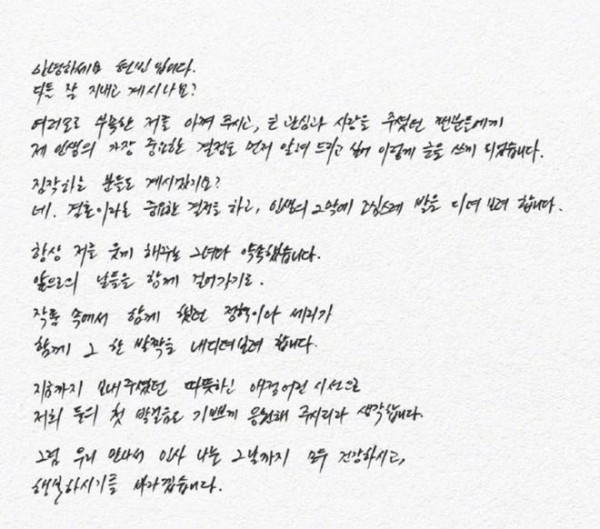 안녕하세요 현빈입니다.
다들 잘 지내고 계시나요?
여러모로 부족한 저를 아껴 주시고, 큰 관심과 사랑을 주셨던 팬분들에게
제 인생의 가장 중요한 결정도 먼저 알려 드리고 싶어 이렇게 글을 쓰게 되었습니다.
짐작하는 분들도 계시겠지요?
네. 결혼이라는 중요한 결정을 하고, 인생의 2막에 조심스레 발을 디뎌 보려 합니다.
항상 저를 웃게 해주는 그녀와 약속했습니다.
앞으로의 날들을 함께 걸어가기로.
작품 속에서 함께 했던 정혁이와 세리가
함께 그 한 발짝을 내디뎌보려 합니다.
지금까지 보내주셨던 따뜻하신 애정어린 시선으로
저희 둘의 첫 발걸음도 기쁘게 응원해 주시리라 생각합니다.
그럼 우리 만나서 인사 나눌 그날까지 모두 건강하시고,
행복하시기를 바라겠습니다.